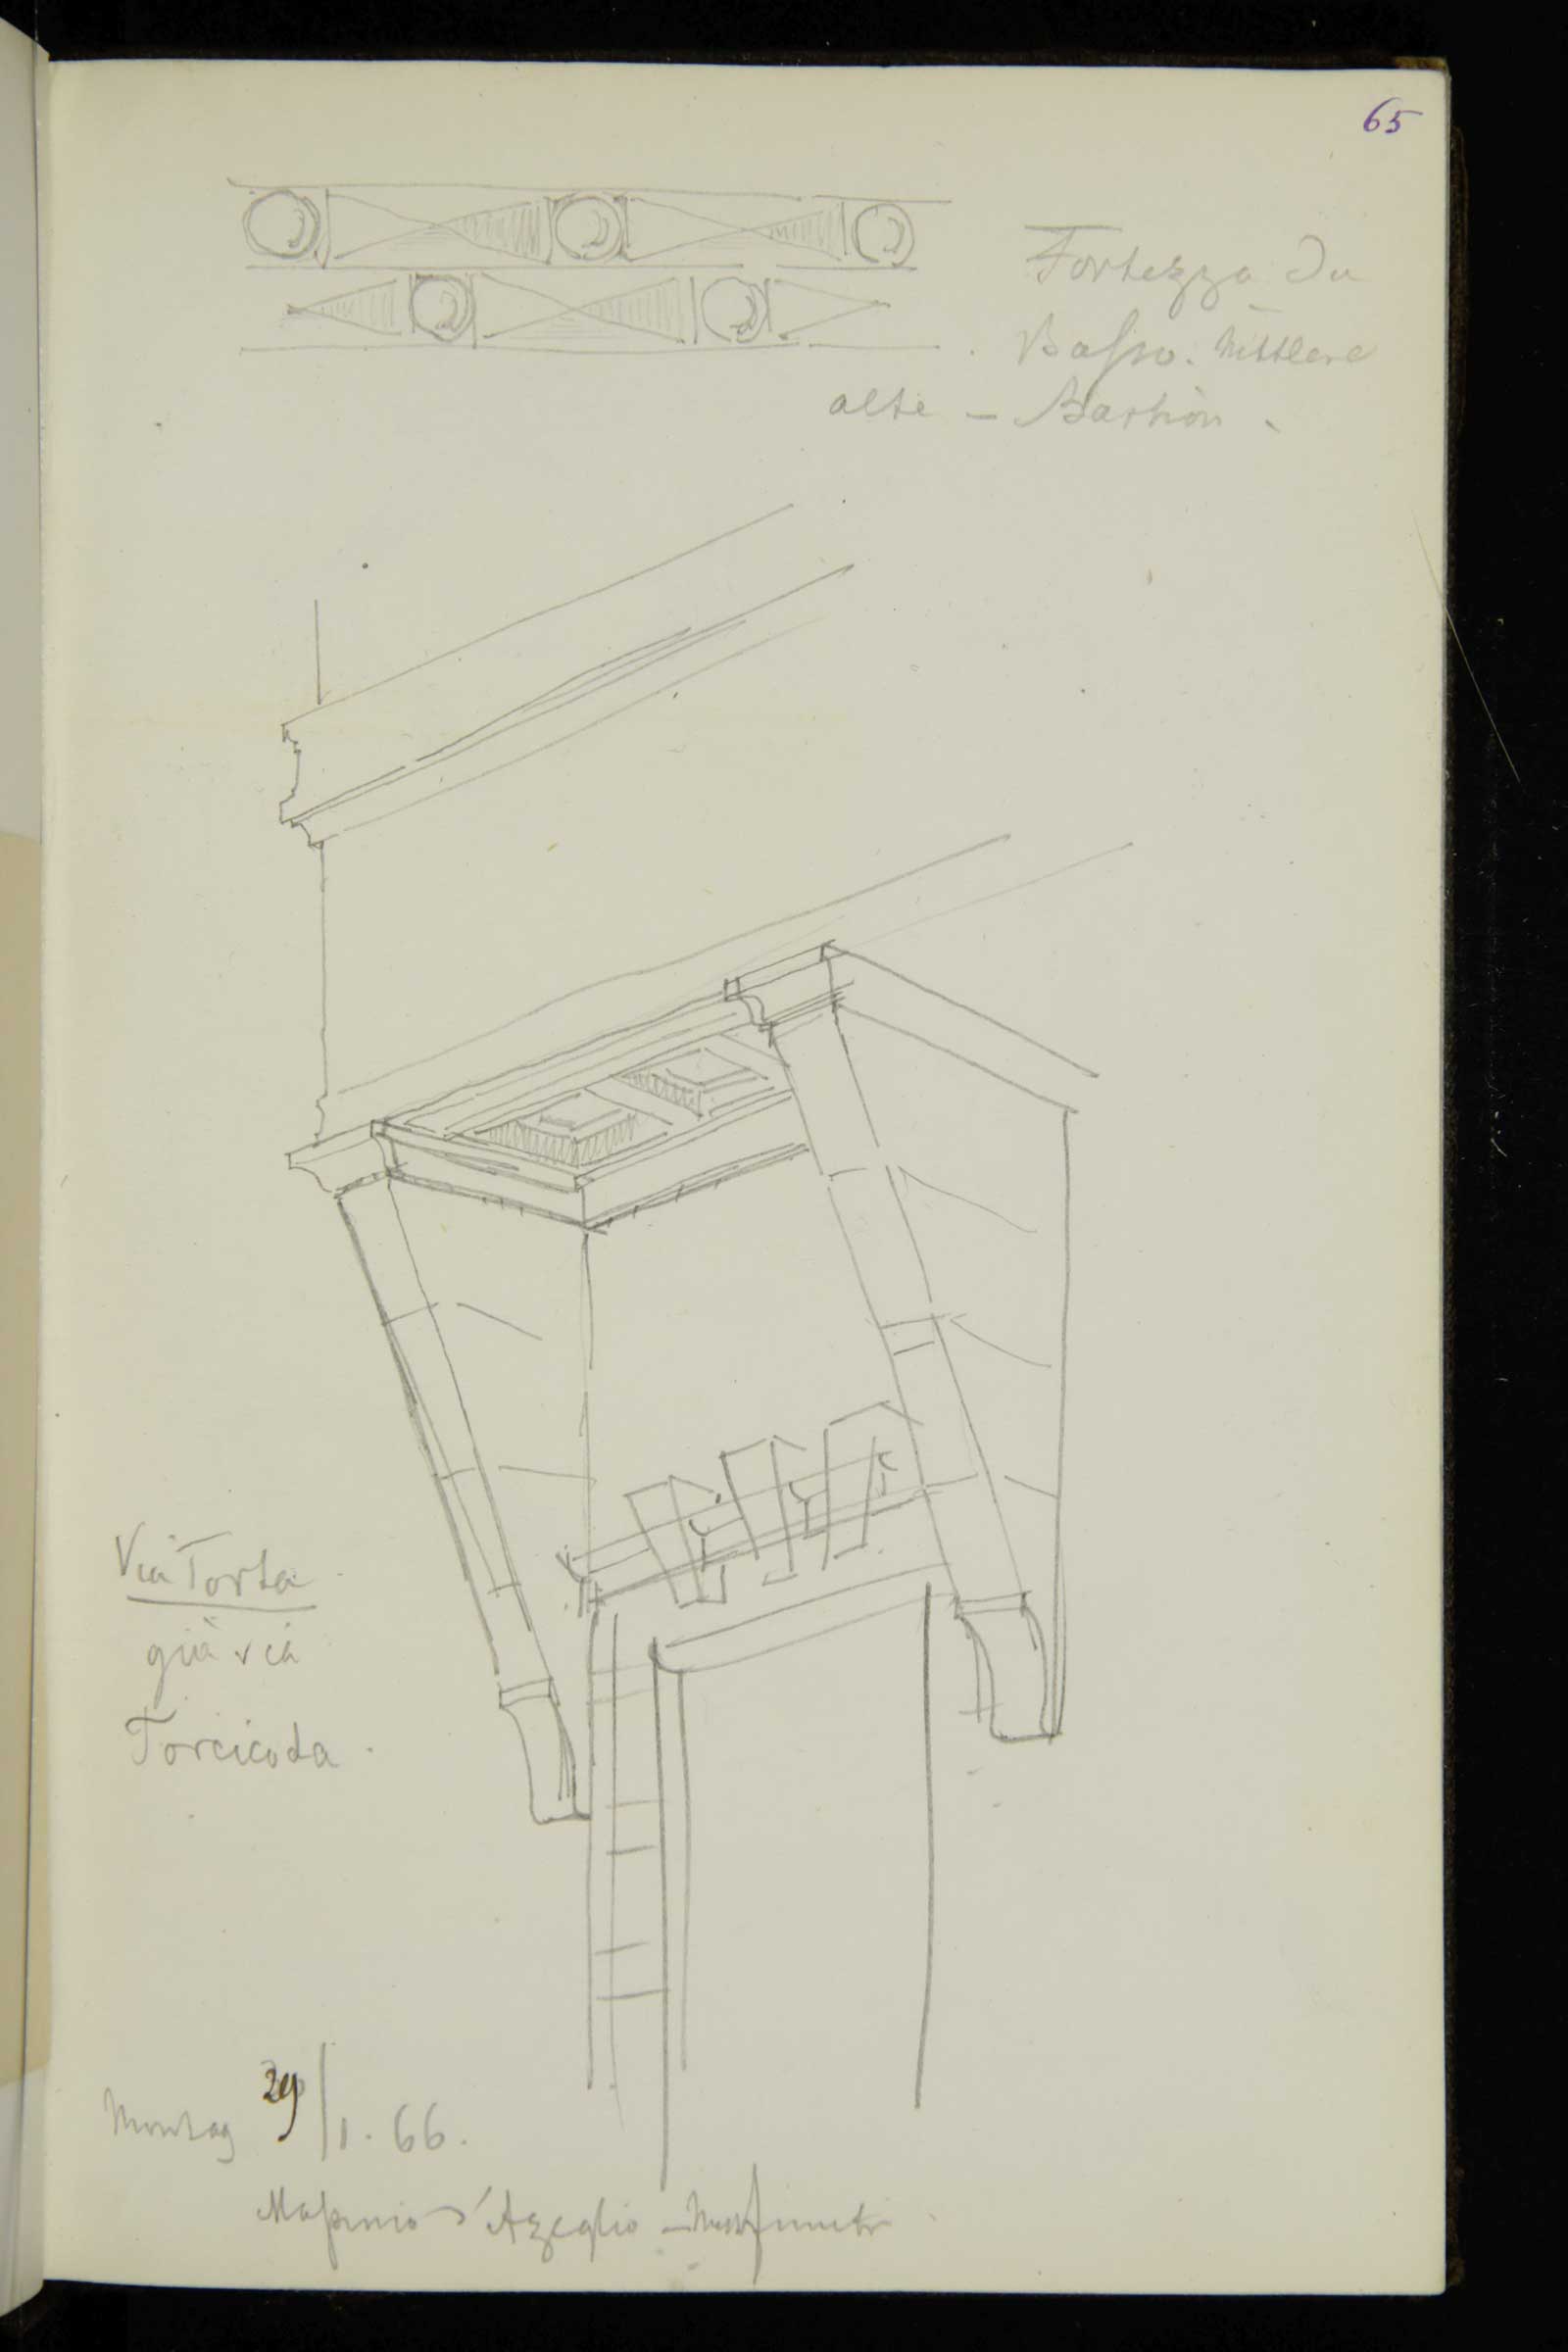 65
Fortezza da
Basso. Mittlere
alte - Bastion.
Via Torta
già via
Torcicoda.
Montag 29/1. 66.
Massimo d'Azeglio -